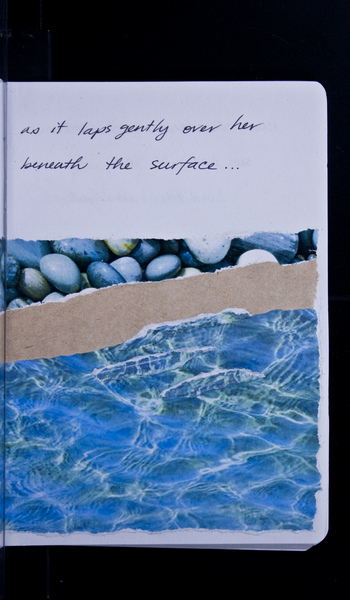 as it laps gently over her
beneath the surface...